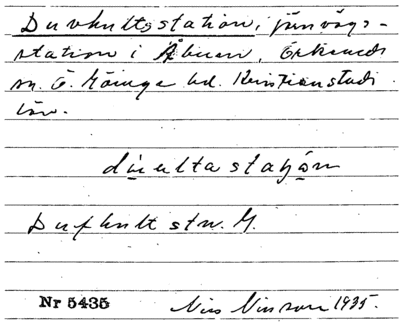 Duvhultsstation, järnvägs-
station i Åbuen, Örkeneds
sn. Ö. Göinge hd. Kristianstads
län.
duultastaſjǫn
Dufhult stn. G.
Nr 5435 Nils Nilsson 1935.